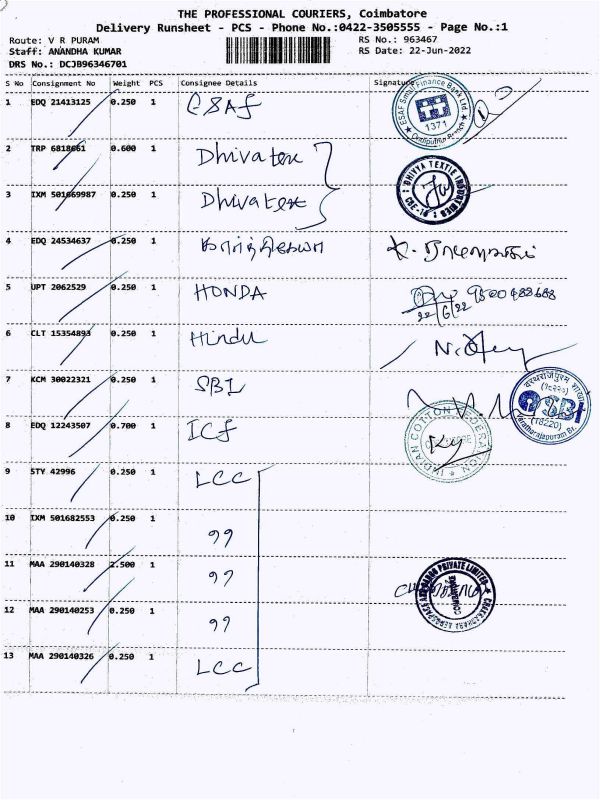 THE PROFESSIONAL COURIERS, Coimbatore
Delivery Runsheet - PCS - Phone No.:0422-3505555 - Page No.:1
Route: V R PURAM RS No.: 963467
Staff: ANANDHA KUMAR RS Date: 22-Jun-2022
DRS No.: DCJB96346701
S No Consignment No Weight PCS Consignee Details Signature
1 EDQ 21413125 0.250 1 ESAF
ESAF Small Finance Bank Ltd. 1371 Ondiputhur Branch
2 TRP 6818661 0.600 1 Dhivatex
3 IXM 501669987 0.250 1 Dhivatex
DHIVYA TEXTILE INDUSTRIES
4 EDQ 24534637 0.250 1
5 UPT 2062529 0.250 1 HONDA
22/6/22
6 CLT 15354893 0.250 1 Hindu
7 KCM 30022321 0.250 1 SBI
वरदराजपुरम शाखा SBI (18220) Varatharajapuram Br.
8 EDQ 12243507 0.700 1 ICF
INDIAN COTTON FEDERATION
9 STY 42996 0.250 1 LCC
10 IXM 501682553 0.250 1 ״
11 MAA 290140328 2.500 1 ״
12 MAA 290140253 0.250 1 ״
13 MAA 290140326 0.250 1 LCC